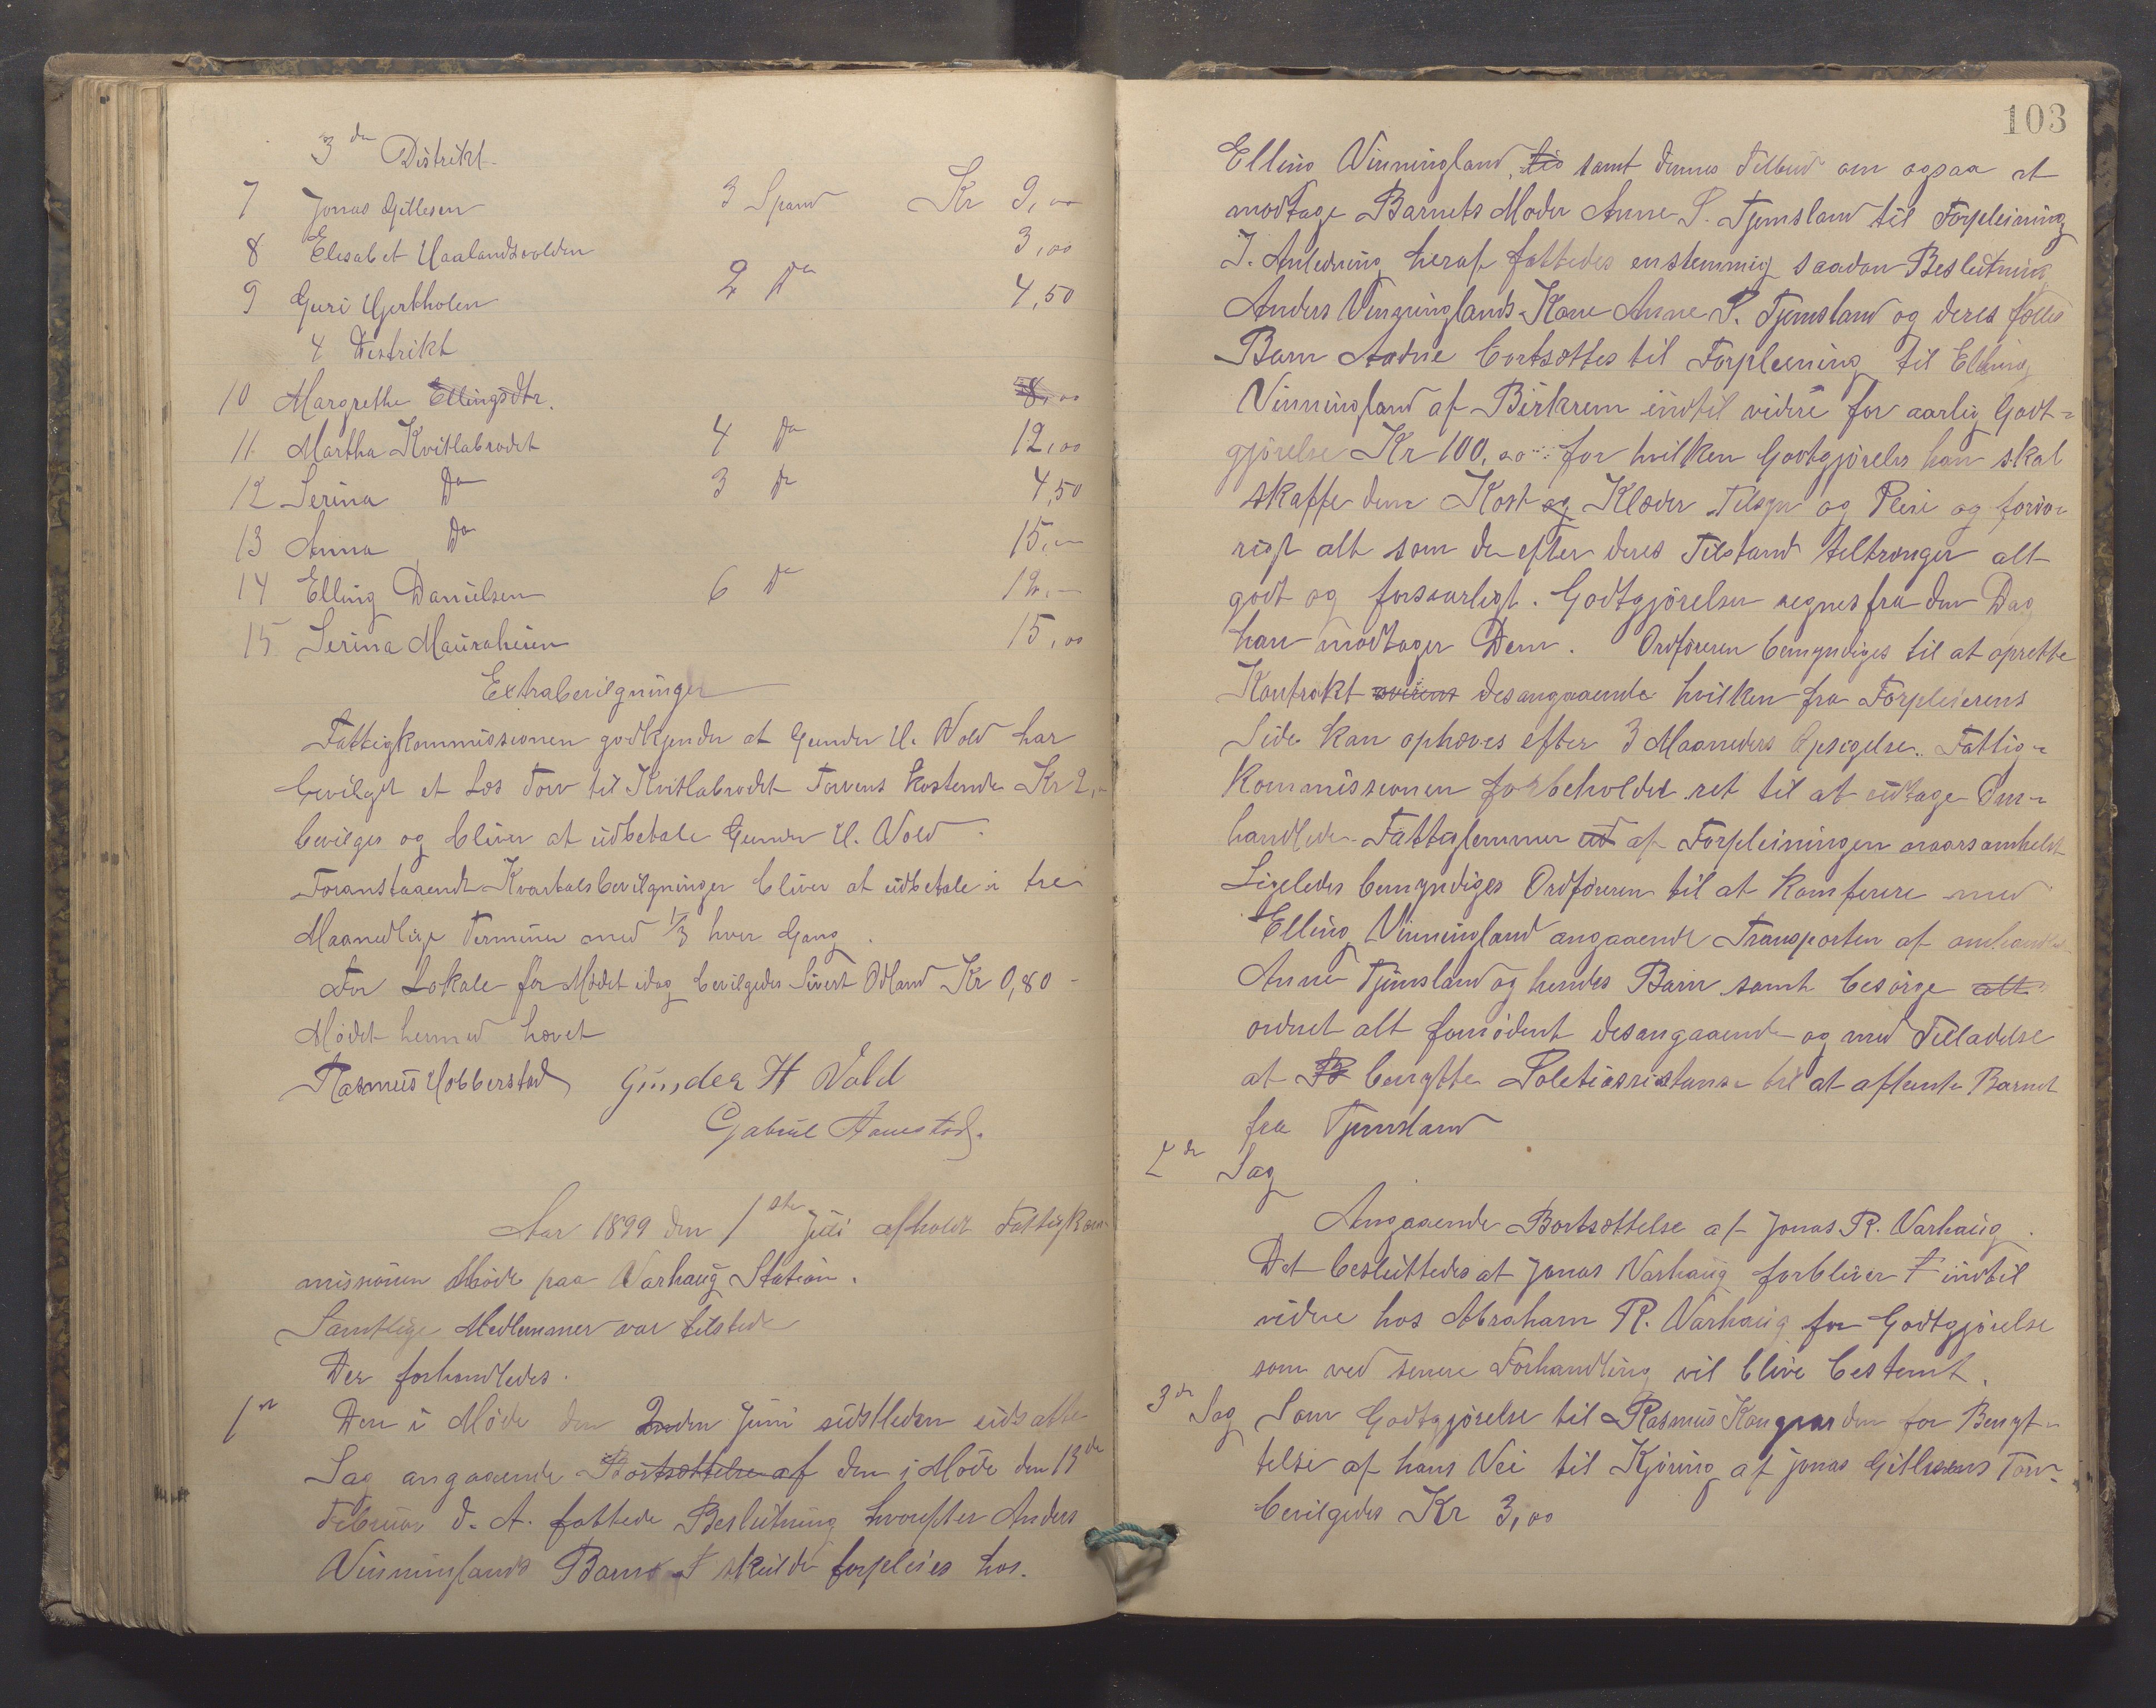 3die Distrikt
7 Jonas Gitlesen 3 Spand Kr 9,00
8 Elisabet Haalandsvolden 3,00
9 Guri Hjerkholen 2 Do 4,50
4 Distrikt
10 Margrethe Ellingsdtr. 8,00
11 Martha Kvitlabrodet 4 Do 12,00
12 Serina Do 3 Do 4,50
13 Anna Do 15,00
14 Elling Danielsen 6 Do 12,00
15 Serina Mauraheien 15,00
Extrabevilgninger
Fattigkommissionen godkjender at Gunder H. Vold har
bevilget et Læs Torv til Kvitlabrodet Torvens Kostende Kr 2,-
bevilges og bliver at udbetale Gunder H. Vold.
Foranstaaende Kvartalsbevilgninger bliver at udbetale i tre
Maanedlige Terminer med 1/3 hver Gang.
For Lokale for Mødet idag bevilgedes Sivert Odland Kr 0,80
Mødet hermed hævet
Rasmus Hobberstad Gunder H Vold
Gabriel Aanestad.
Aar 1899 den 1ste Juli afholdt Fattigkom-
missionen Møde paa Varhaug Station.
Samtlige Medlemmer var tilstede
Der forhandledes.
1ste Den i Møde den 2nden Juni sidstleden udsatte
Sag angaaende Bortsættelse af den i Møde den 13de
Februar d. A. fattede Beslutning hvorefter Anders
Vinninglands Barn skulde forpleies hos
103
Elling Vinningland, samt dennes Tilbud om ogsaa at
modtage Barnets Moder Anne P. Tjemsland til Forpleining
I Anledning heraf fattedes enstemmig saadan Beslutning
Anders Vinninglands Kone Anne P. Tjemsland og deres fælles
Barn Aadne bortsættes til Forpleining til Elling
Vinningland af Birkrem indtil videre for aarlig Godt-
gjørelse Kr 100,00 for hvilken Godtgjørelse han skal
skaffe dem Kost og Klæder Tilsyn og Pleie og forøv-
rigt alt som de efter deres Tilstand tiltrænger alt
godt og forsvarligt. Godtgjørelsen regnes fra den Dag
han modtager Dem. Ordføreren bemyndiges til at oprette
Kontrakt desangaaende hvilken fra Forpleierens
Side kan ophæves efter 3 Maaneders Opsigelse. Fattig-
kommissionen forbeholder ret til at udtage Om-
handlede Fattiglemmer ud af Forpleiningen naarsomhelst
Ligeledes bemyndiges Ordføreren til at Konferere med
Elling Vinningland angaaende Transporten af omhandlede
Anne Tjemsland og hendes Barn samt besørge alt
ordnet alt fornødent desangaaende og med Tilladelse
at benytte Politiassistanse til at afhente Barnet
fra Tjemsland
2de Sag
Angaaende Bortsættelse af Jonas R. Varhaug.
Det besluttedes at Jonas Varhaug forbliver indtil
videre hos Abraham R. Varhaug for Godtgjørelse
som ved senere Forhandling vil blive bestemt.
3de Sag Som Godtgjørelse til Rasmus Kongvarden for Benyt-
telse af hans Vei til Kjøring af Jonas Gitlesens Torv
bevilgedes Kr 3,00